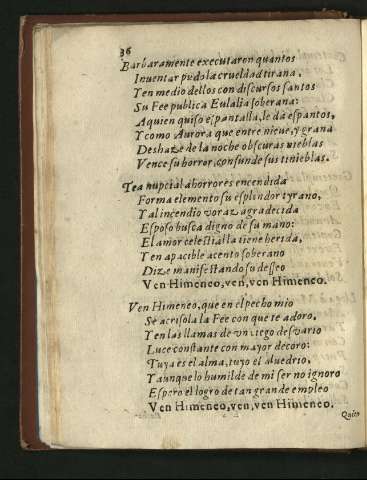 36
Barbaramente executaron quantos
Inuentar pudo la crueldad tirana,
Y en medio dellos con discursos santos
Su Fee publica Eulalia soberana:
A quien quiso espantalla, le dà espantos,
Y como Aurora que entre nieue, y grana
Deshaze de la noche obscuras nieblas
Vence su horror, confunde sus tinieblas.
Tea nupcial ahorrores encendida
Forma elemento su esplendor tyrano,
Y al incendio voraz agradecida
Esposo busca digno de su mano:
El amor celestial la tiene herida,
Y en apacible acento soberano
Dize manifestando su desseo
Ven Himeneo, ven, ven Himeneo.
Ven Himeneo, que en el pecho mio
Se acrisola la Fee con que te adoro,
Y en las llamas de vn ciego desvario
Luce constante con mayor decoro:
Tuya es el alma, tuyo el aluedrio,
Y aunque lo humilde de mi ser no ignoro
Espero el logro de tan grande empleo
Ven Himeneo, ven, ven Himeneo.